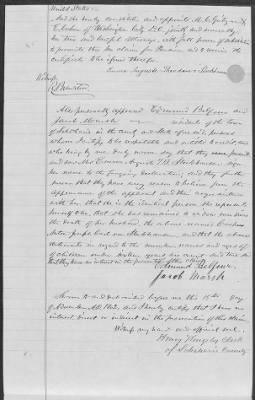 United States
And she hereby constitute and appoints
of Washington City
her true and lawful Attorneys with full power of substitution
to prosecute this her claim for Pension and to receive the
certificate when issued therefor
Emma Augusta Theodora
Witness
Also personally appeared Edmund Balfour and
Jacob Marsh resident of the town
of Schoharie in the County and State aforesaid, persons
whom I certify to be respectable and entitled to credit and
who being by me duly sworn say that they were present
and saw Mrs Emma August sign
her name to the foregoing declaration, and they further
swear that they have every reason to believe from the
appearance of the applicant and their acquaintance
with her, that she is the identical person she represents
herself to be, that she has remained a widow since
the death of her husband, the above named
Joseph Carl and that the above
statements in regard to the number, names and ages of
children under sixteen years are correct and that
they have no interest in the prosecution of this claim
Edmund Balfour
Jacob Marsh
Sworn to and subscribed before me this 15th Day
of and I hereby certify that I have no
interest direct or indirect in the prosecution of this claim
Witness my hand and official seal
Henry Kingsley Clerk
of Schoharie County